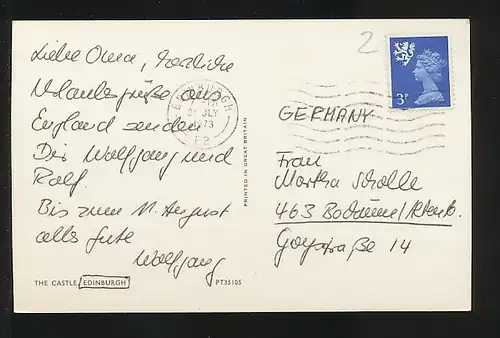 Liebe Oma, herzliche
Urlaubsgrüße aus
England senden
Dir Wolfgang und
Rolf.
Bis zum 11. August
alles Gute
Wolfgang
THE CASTLE, EDINBURGH
PT35105
PRINTED IN GREAT BRITAIN
EDINBURGH
JLY
1973
2
3P
GERMANY
Frau
Martha Scholle
463 Bochum
Goystraße 14